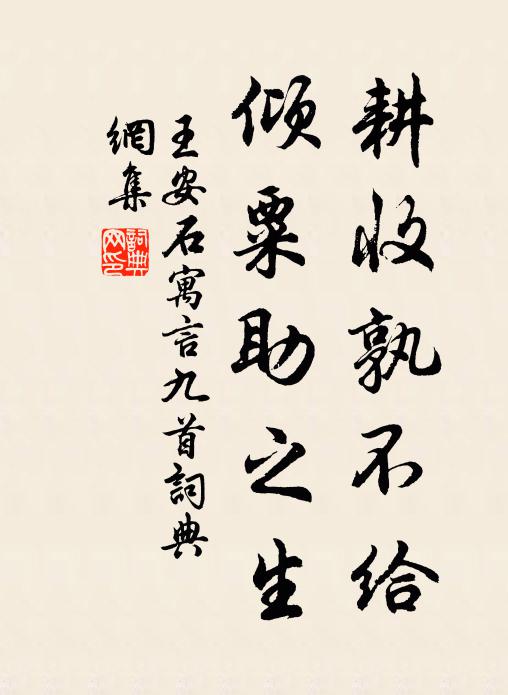 耕收孰不给
倾粟助之生
王安石寓言九首詞典
網集
詞典
网印